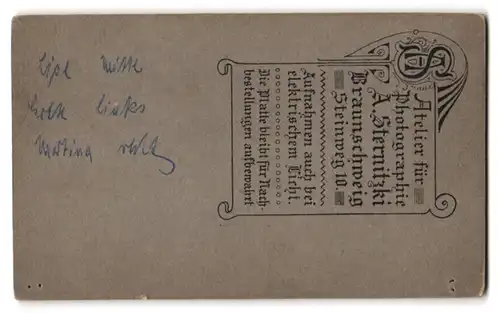 Mitte
links
Martina
AS
Atelier für
Photographie
A. Sternitzki
Braunschweig
Steinweg 10.
Aufnahmen auch bei
elektrischem Licht.
Die Platte bleibt für Nach-
bestellungen aufbewahrt